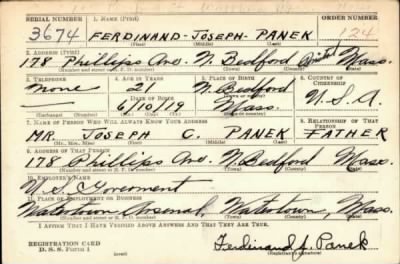 SERIAL NUMBER 1. NAME (Print) ORDER NUMBER
3674 FERDINAND - JOSEPH - PANEK 124
(First) (Middle) (Last)
2. ADDRESS (Print)
178 Phillips Ave. N. Bedford Bristol Mass.
(Number and street or R. F. D. number) (Town) (County) (State)
3. TELEPHONE 4. AGE IN YEARS 5. PLACE OF BIRTH 6. COUNTRY OF CITIZENSHIP
none 21 N. Bedford
DATE OF BIRTH (Town or county)
— 6/10/19 Mass. U.S.A.
(Exchange) (Number) (Mo.) (Day) (Yr.) (State or country)
7. NAME OF PERSON WHO WILL ALWAYS KNOW YOUR ADDRESS 8. RELATIONSHIP OF THAT PERSON
MR. JOSEPH C. PANEK FATHER
(Mr., Mrs., Miss) (First) (Middle) (Last)
9. ADDRESS OF THAT PERSON
178 Phillips Ave. N. Bedford Mass.
(Number and street or R. F. D. number) (Town) (County) (State)
10. EMPLOYER'S NAME
U.S. Government
11. PLACE OF EMPLOYMENT OR BUSINESS
Watertown Arsenal, Watertown, Mass.
(Number and street or R. F. D. number) (Town) (County) (State)
I AFFIRM THAT I HAVE VERIFIED ABOVE ANSWERS AND THAT THEY ARE TRUE.
REGISTRATION CARD
D. S. S. Form 1 (over) Ferdinand J. Panek